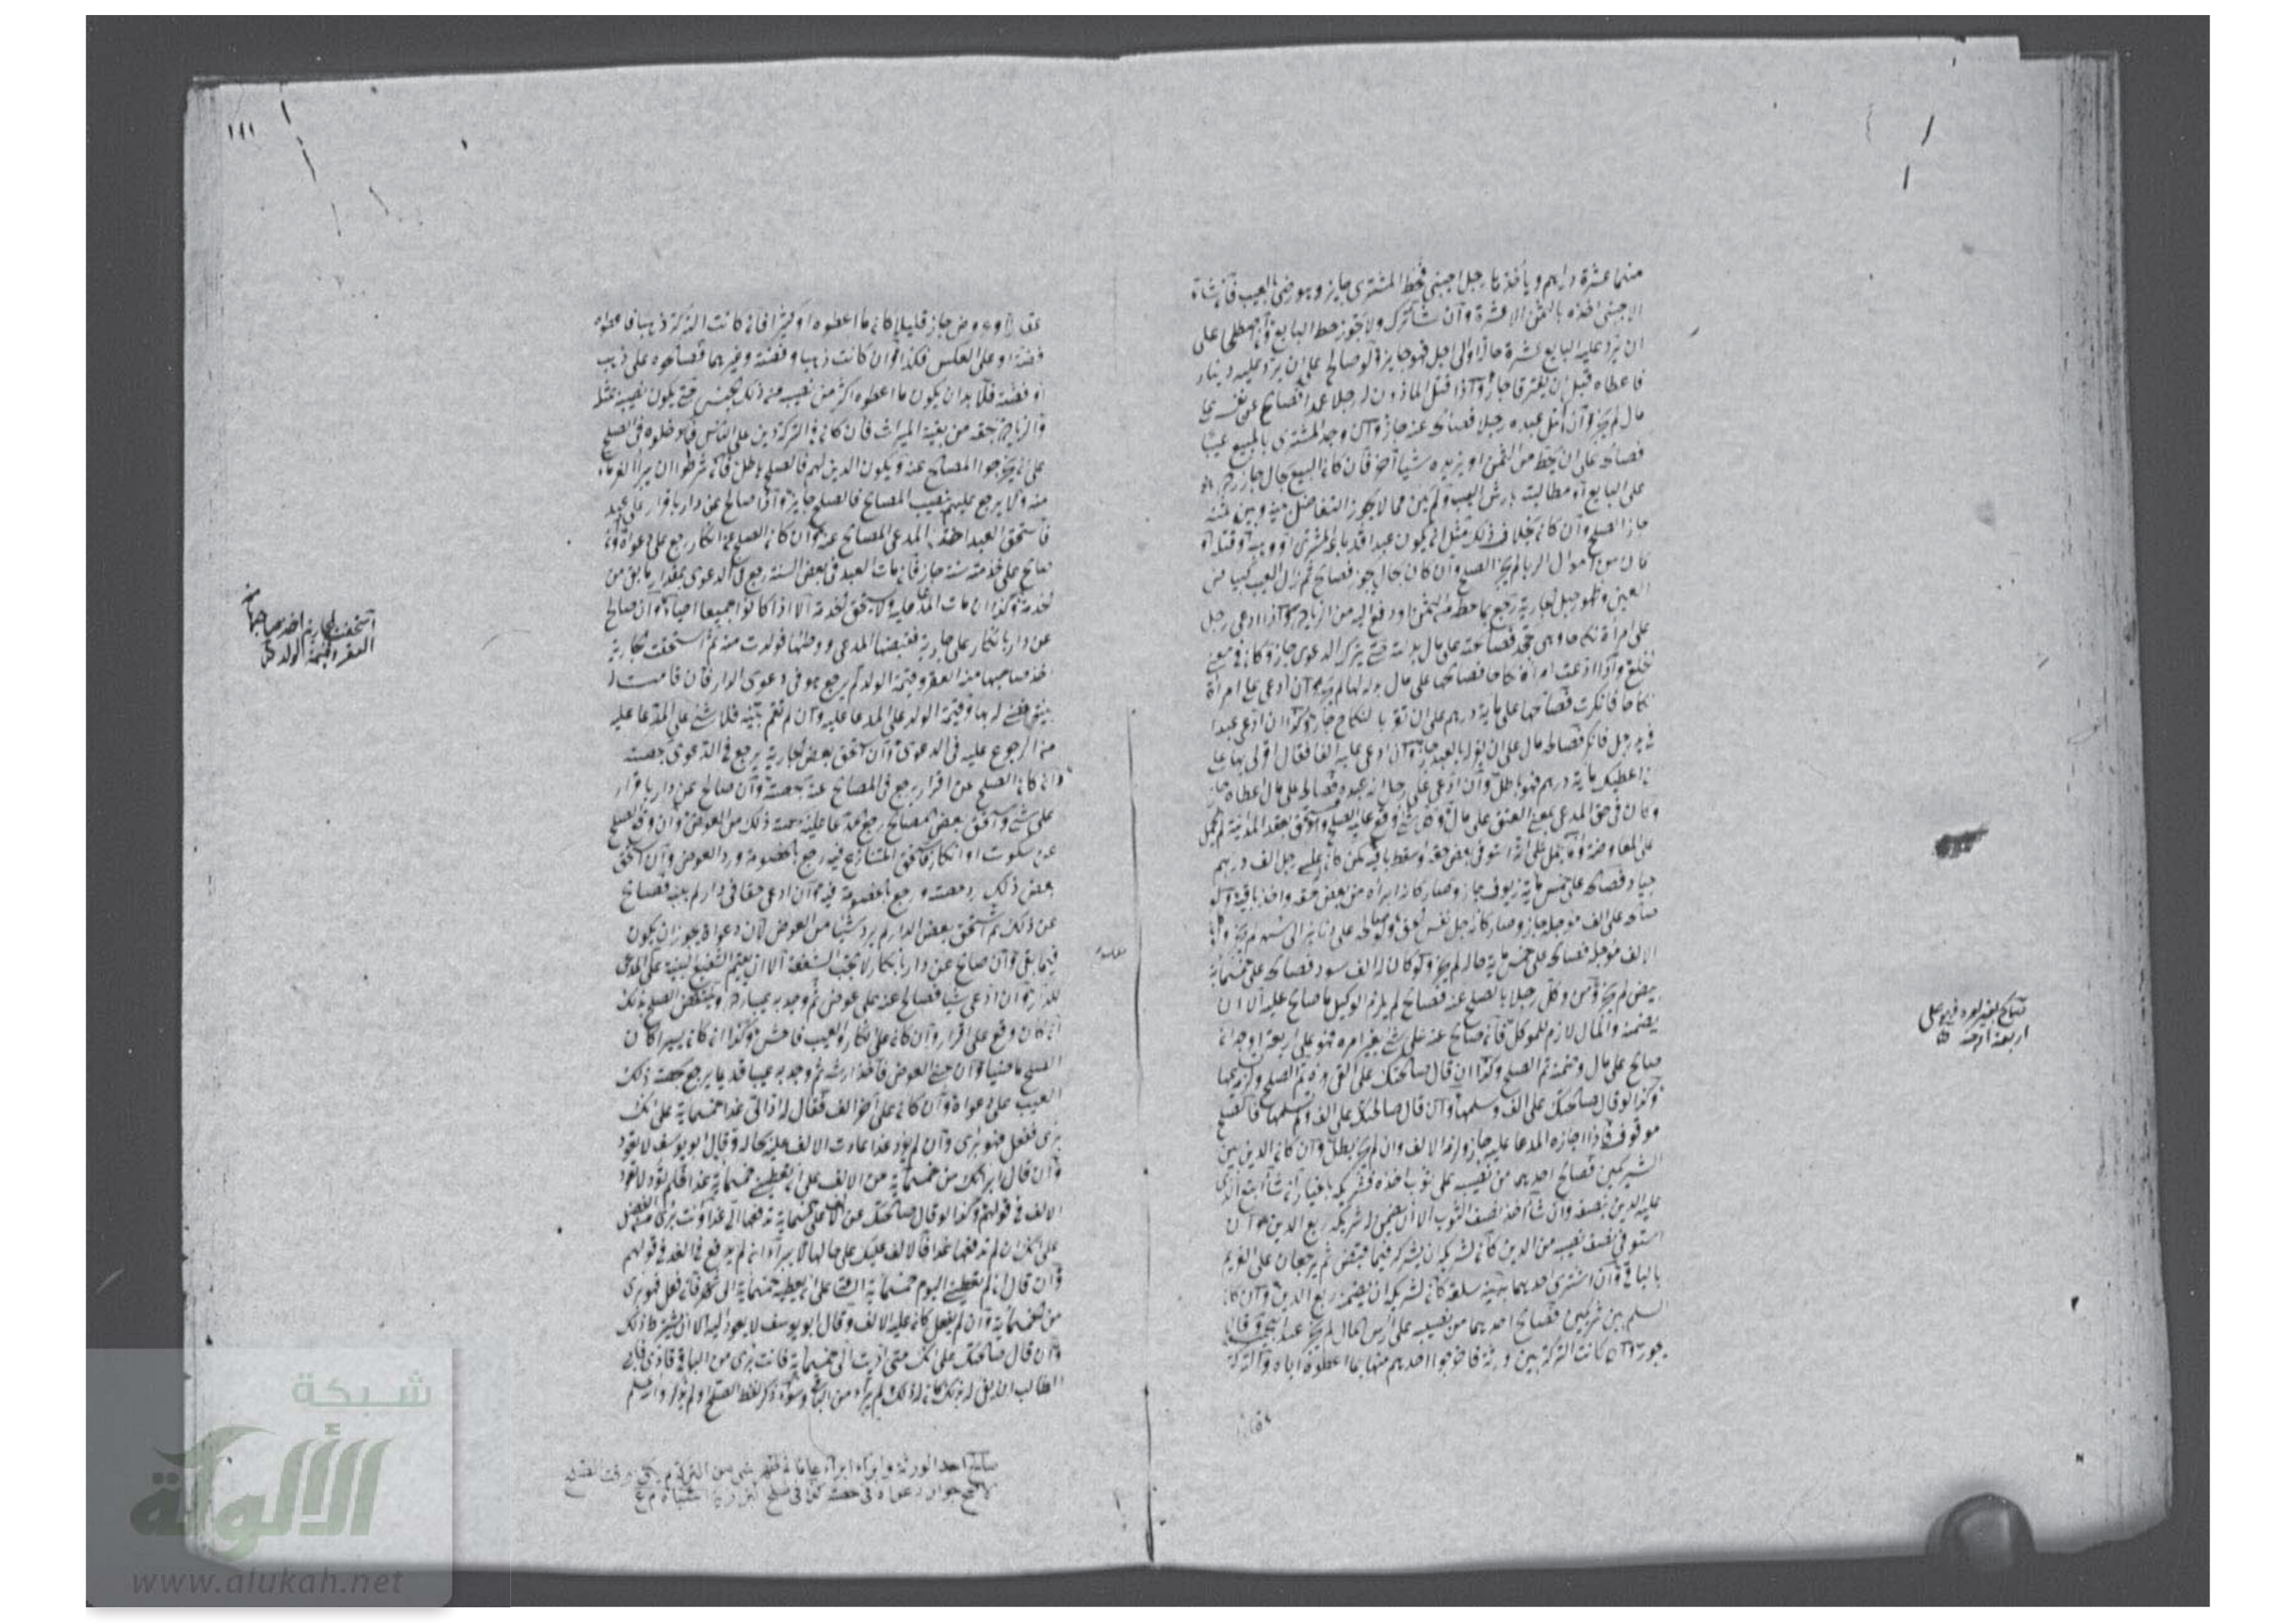 منهما عشرة دراهم و يأخذها رجل اجنبي فحط المشتري جايز وهو رضى بالعيب فان شاء
الاجنبي اخذه بالثمن الا عشرة وان شا ترك ولا يجوز حط البايع وان اصطلحا على
ان يرد عليه البايع عشرة حالا او الى اجل فهو جايز ولو صالح على ان يرد عليه دينار
فاعطاه قبل ان يفترقا جاز واذا قتل الماذون له رجلا عمدا فصالح عن نفسه على
مال لم يجز وان قتل عبده رجلا فصالح عنه جاز وان وجد المشتري بالمبيع عيبا
فصالحه على ان يحط من الثمن او يزيده شيا آخر فان كان المبيع بحال جاز رده
على البايع او مطالبته بارش العيب ولم يكن مما لا يجوز التفاضل بينه وبين ثمنه
جاز الصلح وان كان بخلاف ذلك مثل ان يكون عبدا قد باعه المشتري او وهبه او قتله او
كان من اموال الربا لم يجز الصلح وان كان بحال يجوز فصالح ثم زال العيب كبياض
العين وظهور حبل الجارية رجع بما حط من الثمن او دفع اليه من الزيادة واذا ادعى رجل
على امرأة نكاحا وهي تجحد فصالحته على مال بذلته حتى يترك الدعوى جاز وكان في معنى
الخلع واذا ادعت امرأة نكاحا فصالحها على مال بذله لها لم يجز وان ادعى على امرأة
نكاحا فانكرت فصالحها على ماية درهم على ان تقر بالنكاح جاز وكذا ان ادعى عبدا
في يد رجل فانكر فصالحه مال على ان يقر له بالعبد جاز وان ادعى عليه الفا فقال اقر لي بها على
ان اعطيك ماية درهم فهو باطل وان ادعى على رجل انه عبده فصالحه على مال اعطاه جاز
وكان في حق المدعي بمعنى العتق على مال وكل شئ وقع عليه الصلح وهو مستحق بعقد المداينة لم يحمل
على المعاوضة وانما يحمل على انه استوفى بعض حقه واسقط باقيه كمن كان له على رجل الف درهم
جياد فصالحه على خمس ماية زيوف جاز وصار كانه ابراه من بعض حقه واخذ باقيه ولو
صالحه على الف موجلة جاز وصار كانه اجل نفس الحق ولو صالحه على دنانير الى شهر لم يجز ولو كان له
الالف موجلة فصالحه على خمس ماية حالة لم يجز ولو كان له الف سود فصالحه على خمسماية
بيض لم يجز ومن وكل رجلا بالصلح عنه فصالح لم يلزم الوكيل ما صالح عليه الا ان
يضمنه والمال لازم للموكل فان صالح عنه على شئ بغير امره فهو على اربعة اوجه ان
صالح على مال وضمنه تم الصلح وكذا ان قال صالحتك على الفي هذه تم الصلح ولزمه تسليمها
وكذا لو قال صالحتك على الف وسلمها وان قال صالحتك على الف ولم يسلمها فالصلح
موقوف فاذا اجازه المدعا عليه جاز ولزمه الالف وان لم يجزه بطل وان كان الدين بين
الشريكين فصالح احدهما من نصيبه على ثوب اخذه فشريكه بالخيار ان شا اتبع الذي
عليه الدين بنصفه وان شا اخذ نصف الثوب الا ان يضمن له شريكه ربع الدين وان
استوفى نصف نصيبه من الدين كان لشريكه ان يشركه فيما قبض ثم يرجعان على الغريم
بالباقي وان اشترى احدهما بنصيبه سلعة كان لشريكه ان يضمنه ربع الدين وان كان
السلم بين شريكين فصالح احدهما من نصيبه على راس المال لم يجز عند ابي حنيفة وقالا
يجوز وان كانت التركة بين ورثة فاخرجوا احدهم منها بما اعطوه اياه والتركة
صالح بغير امره فهو على
اربعة اوجه
١٨١
عقار او عروض جاز قليلا كان ما اعطوه او كثيرا فان كانت التركة ذهبا فاعطوه
فضة او على العكس فكذا وان كانت ذهبا وفضة وغيرهما فصالحوه على ذهب
او فضة فلا بد ان يكون ما اعطوه اكثر من نصيبه من ذلك الجنس حتى يكون نصيبه بمثله
والزيادة بحقه من بقية الميراث فان كان في التركة دين على الناس فادخلوه في الصلح
على ان يخرجوا المصالح عنه ويكون الدين لهم فالصلح باطل فان شرطوا ان يبرا الغرماء
منه ولا يرجع عليهم بنصيب المصالح فالصلح جايز واذا صالح عن دار باقرار على عبد
فاستحق العبد اخذ المدعي المصالح عنه وان كان الصلح عن انكار رجع على دعواه وان
صالح على خدمته سنة جاز فان مات العبد في بعض السنة رجع في الدعوى بمقدار ما بقي من
الخدمة وكذا ان مات المدعا عليه ولا يستحق الخدمة الا اذا كانوا جميعا احياء وان صالح
عن دار بانكار على جارية فقبضها المدعي ووطئها فولدت منه ثم استحقت الجارية
اخذ صاحبها منه العقر وقيمة الولد ثم يرجع هو في دعوى الدار فان قامت له
بينة قضى له بها وقيمة الولد على المدعا عليه وان لم تقم بينة فلا شئ على المدعا عليه
من الرجوع عليه في الدعوى وان استحق بعض الجارية يرجع في الدعوى بحصته
وان كان الصلح عن اقرار يرجع في المصالح عنه بحصته وان صالح عن دار باقرار
على شئ واستحق بعض المصالح رجع المدعا عليه بحصة ذلك من العوض وان وقع الصلح
عن سكوت او انكار فاستحق المتنازع فيه رجع بالخصومة ورد العوض وان استحق
بعض ذلك رد حصته ورجع بالخصومة فيه وان ادعى حقا في دار لم يبينه فصالح
عن ذلك ثم استحق بعض الدار لم يرد شيئا من العوض لان دعواه يجوز ان يكون
فيما بقي وان صالح عن دار بانكار لا تجب الشفعة الا ان يقيم الشفيع البينة على المدعي
للدار وان ادعى شيا فصالح عنه على عوض ثم وجد به عيبا رده وينتقض الصلح بذلك
ان كان وقع على اقرار وان كان على انكار والعيب فاحش وكذا ان كان يسيرا كان
الصلح ماضيا
العيب على دعواه وان كان له على آخر الف فقال له اذا الي غدا خمسماية على انك
بري ففعل فهو بري وان لم يؤد غدا عادت الالف عليه بحاله وقال ابو يوسف لا يعود
وان قال ابراتك من خمسماية من الالف على ان تعطيني خمسماية غدا فلم يؤد لا تعود
الالف في قولهم وكذا لو قال صالحتك عن الالف على خمسماية تدفعها الي غدا وانت بري من الفضل
على انك ان لم تدفعها غدا فالالف عليك على حالها لا يبرأ اذا لم يدفع في الغد في قولهم
وان قال
من الخمسماية وان لم يفعل كان عليه الالف وقال ابو يوسف لا يعود اليه الا ان يشترط ذلك
وان قال صالحتك على انك متى اديت الي خمسماية فانت بري من الباقي
استحقت الجارية اخذ صاحبها
العقر وقيمة الولد
صالح احد الورثة وابراه ابراء عاما ثم ظهر شي من التركة لم يكن وقت الصلح
الاصح جواز دعواه في حصته كذا في صلح البزازية اشباه
شبكة
الألوكة
www.alukah.net